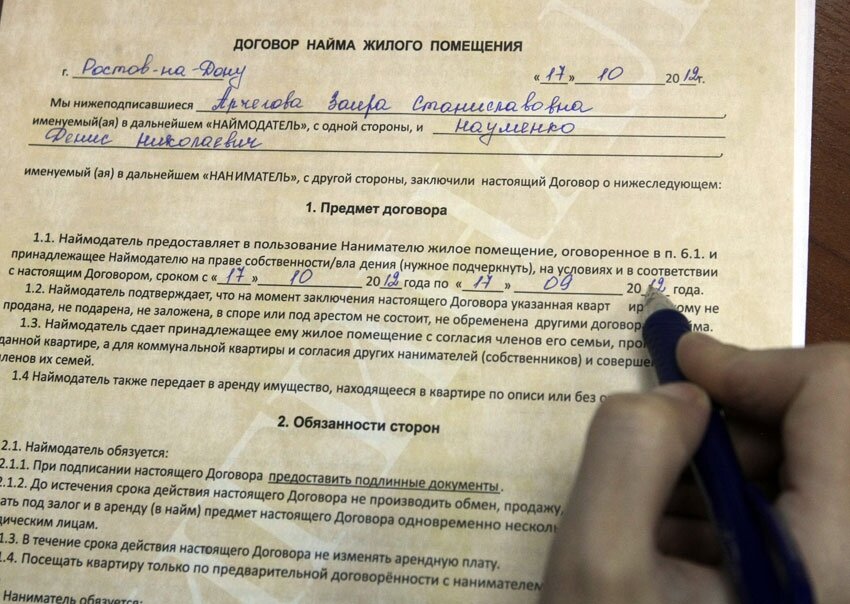 ДОГОВОР НАЙМА ЖИЛОГО ПОМЕЩЕНИЯ
г. Ростов-на-Дону «17» 10 2012г.
Мы нижеподписавшиеся Арчегова Заира Станиславовна,
именуемый(ая) в дальнейшем «НАЙМОДАТЕЛЬ», с одной стороны, и Науменко
Денис Николаевич,
именуемый (ая) в дальнейшем «НАНИМАТЕЛЬ», с другой стороны, заключили настоящий Договор о нижеследующем:
1. Предмет договора
1.1. Наймодатель предоставляет в пользование Нанимателю жилое помещение, оговоренное в п. 6.1. и
принадлежащее Наймодателю на праве собственности/вла дения (нужное подчеркнуть), на условиях и в соответствии
с настоящим Договором, сроком с «17» 10 2012 года по «17» 09 2012 года.
1.2. Наймодатель подтверждает, что на момент заключения настоящего Договора указанная кварт ому не
продана, не подарена, не заложена, в споре или под арестом не состоит, не обременена другими договор йма.
1.3. Наймодатель сдает принадлежащее ему жилое помещение с согласия членов его семьи, про
данной квартире, а для коммунальной квартиры и согласия других нанимателей (собственников) и соверше
членов их семей.
1.4 Наймодатель также передает в аренду имущество, находящееся в квартире по описи или без о
2. Обязанности сторон
2.1. Наймодатель обязуется:
2.1.1. При подписании настоящего Договора предоставить подлинные документы.
2.1.2. До истечения срока действия настоящего Договора не производить обмен, продажу,
ать под залог и в аренду (в найм) предмет настоящего Договора одновременно несколь
дическим лицам.
1.3. В течение срока действия настоящего Договора не изменять арендную плату.
1.4. Посещать квартиру только по предварительной договорённости с нанимателем
Наниматель обязуется: